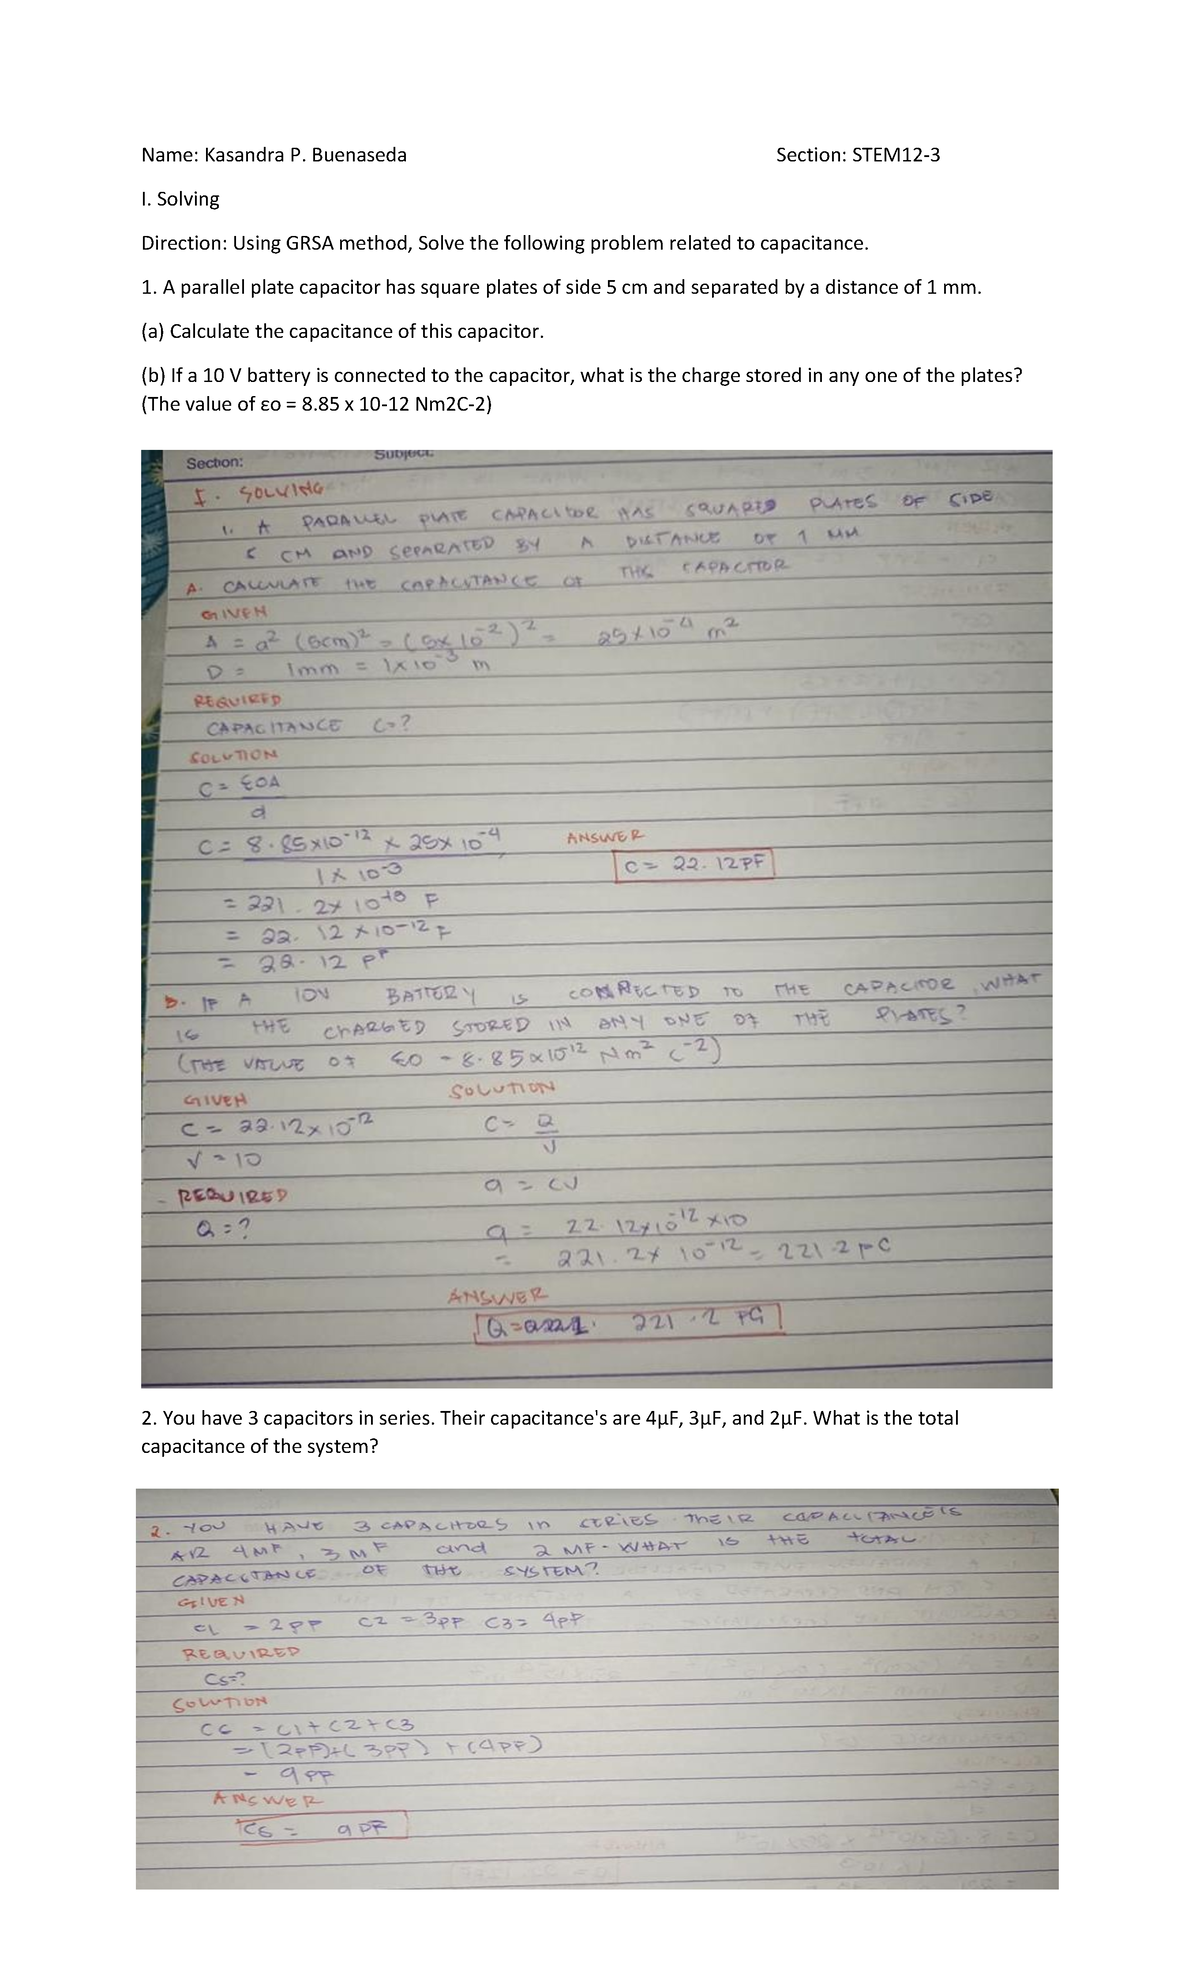 Name: Kasandra P. Buenaseda Section: STEM12-3
I. Solving
Direction: Using GRSA method, Solve the following problem related to capacitance.
1. A parallel plate capacitor has square plates of side 5 cm and separated by a distance of 1 mm.
(a) Calculate the capacitance of this capacitor.
(b) If a 10 V battery is connected to the capacitor, what is the charge stored in any one of the plates?
(The value of εo = 8.85 x 10-12 Nm2C-2)
Section: Subject:
I. SOLVING
1. A PARALLEL PLATE CAPACITOR HAS SQUARED PLATES OF SIDE
5 CM AND SEPARATED BY A DISTANCE OF 1 MM
A. CALCULATE THE CAPACITANCE OF THIS CAPACITOR
GIVEN
A = a² (5cm)² = (5x10⁻²)² = 25x10⁻⁴ m²
D = 1mm = 1x10⁻³ m
REQUIRED
CAPACITANCE C=?
SOLUTION
C = ε0A
d
C = 8.85x10⁻¹² x 25x10⁻⁴ ANSWER
1x10⁻³ C = 22.12PF
= 221.2x10⁻¹³ F
= 22.12x10⁻¹² F
= 22.12 PF
B. IF A 10V BATTERY IS CONNECTED TO THE CAPACITOR, WHAT
IS THE CHARGED STORED IN ANY ONE OF THE PLATES?
(THE VALUE OF ε0 = 8.85x10¹² Nm² C⁻²)
GIVEN SOLUTION
C = 22.12x10⁻¹² C = Q
V = 10 V
- REQUIRED q = CV
Q = ? q = 22.12x10⁻¹² x10
= 221.2x10⁻¹² = 221.2 pC
ANSWER
Q = 221.2 PC
2. You have 3 capacitors in series. Their capacitance's are 4μF, 3μF, and 2μF. What is the total
capacitance of the system?
2. YOU HAVE 3 CAPACITORS In SERIES. THEIR CAPACITANCE'S
AR 4MF, 3MF and 2 MF. WHAT IS THE TOTAL
CAPACITANCE OF THE SYSTEM?
GIVEN
C1 = 2PF C2 = 3PF C3 = 4PF
REQUIRED
CS=?
SOLUTION
CS = C1+C2+C3
= (2PF)+(3PF)+(4PF)
= 9PF
ANSWER
CS = 9PF